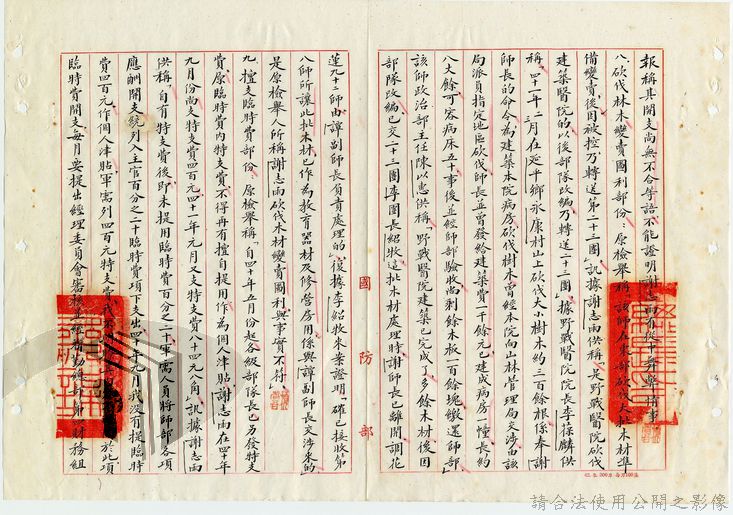 報稱其開支尚無不合等語不能證明謝志雨有從中舞弊情事
八、砍伐林木變賣圖利部份：原檢舉稱「該師在東部砍伐大批木材準
備變賣後因被控乃轉送第二十三團」訊據謝志雨供稱「是野戰醫院砍伐
建築醫院的以後部隊改編乃轉送二十三團」據野戰醫院院長李葆麟供
稱「四十一年二月在延平鄉永康村山上砍伐大小樹木約三百餘根係奉謝
師長的命令為建築本院病房砍伐樹木曾經本院向山林管理局交涉由該
局派員指定地區砍伐師長並曾發給建築費一千餘元已建成病房一幢長約
八丈餘可容病床五十事後並經師部驗收尚剩餘木板一百餘塊繳還師部」
該師政治部主任陳以惠供稱「野戰醫院建築已完成了多餘木材後因
部隊改編已交二十三團李團長紹牧這批木材處理時謝師長已離開調花
蓮九十二師由譚副師長負責處理的」復據李紹牧來案證明「確已接收第
八師所讓此批木材已作為教育器材及修營房用係與譚副師長交涉來的」
是原檢舉人所稱謝志雨砍伐木材變賣圖利與事實不符
九、擅支臨時費部份、原檢舉稱「自四十年五月份起各級部隊長已另發特支
費原臨時費內特支費不得再有擅自提用作為個人津貼謝志雨在四十年
九月份尚支特支費四百元四十一年元月又支特支費八十四元八角」訊據謝志雨
供稱「自有特支費後即未提用臨時費百分之二十軍需人員將師部各項
應酬開支統列入主官百分之二十臨時費項下支出四十年九月我沒有提臨時
費四百元作個人津貼軍需列四百元特支費我
於此項
臨時費開支每月要提出經理委員會審核並經
財務組
國防部
請合法使用公開之影像